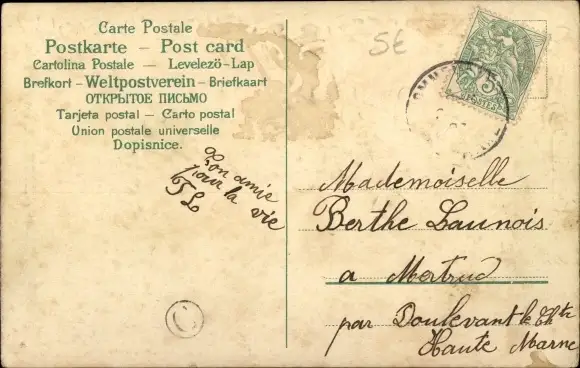 Carte Postale
Postkarte – Post card
Cartolina Postale – Levelező-Lap
Brefkort – Weltpostverein – Briefkaart
ОТКРЫТОЕ ПИСЬМО
Tarjeta postal – Carto postal
Union postale universelle
Dopisnice.
5€
5
POSTES
Ton amie
pour la vie
Mademoiselle
Berthe Launois
a Mertrud
par Doulevant le Chtr
Haute Marne
C